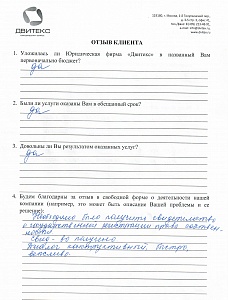 ДВИТЕКС
ОТЗЫВ КЛИЕНТА
1. Уложилась ли Юридическая фирма «Двитекс» в названный Вам
первоначально бюджет?
да
2. Были ли услуги оказаны Вам в обещанный срок?
да
3. Довольны ли Вы результатом оказанных услуг?
да
4. Будем благодарны за отзыв в свободной форме о деятельности нашей
компании (например, это может быть описание Вашей проблемы и ее
решение):
Необходимо было получить свидетельство
о государственной регистрации права собствен.
ности
Свид-во получено
быстро,
вежливо.